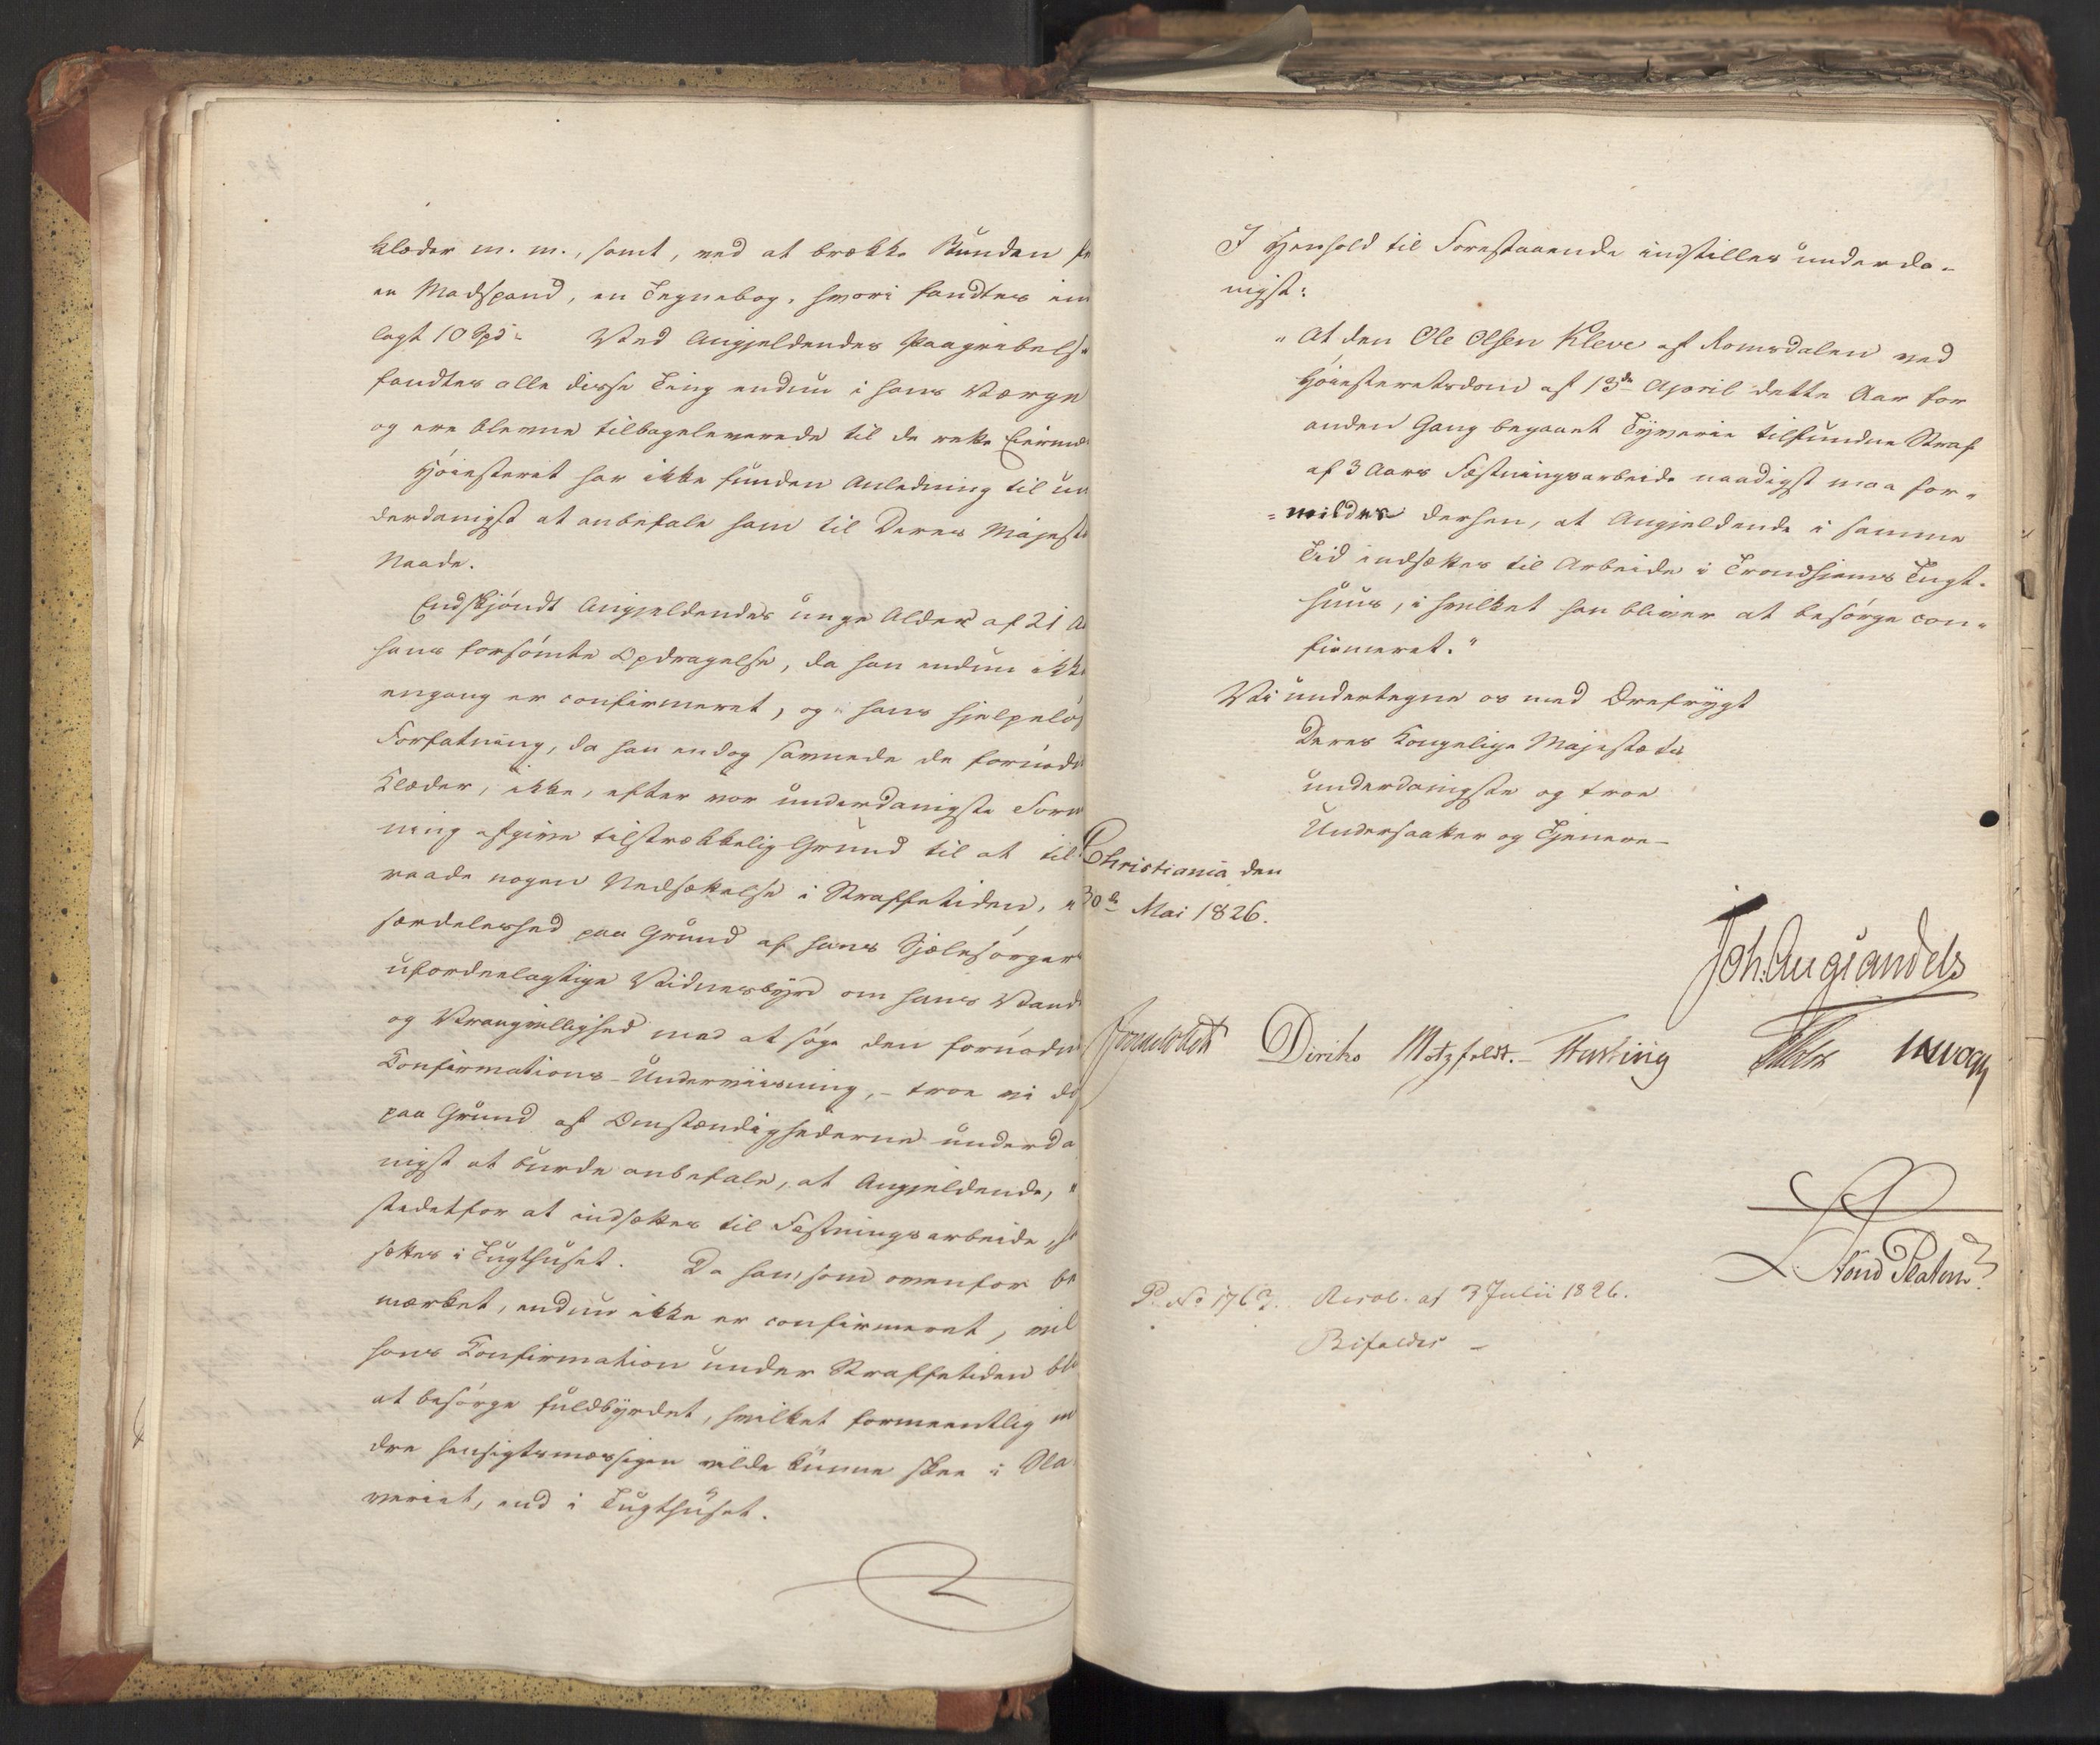 Klæder m. m., samt, ved at brække Bunden
en Madspand, en Tegnebog, hvori fandtes in
lagt 10 Spd. Ved Angjeldendes Paagribelse
fandtes alle disse Ting endnu i hans Værge
og ere blevne tilbageleverede til de rette Eierm
Høiesteret har ikke funden Anledning til un
derdanigst at anbefale ham til Deres Majest
Naade.
Endskjøndt Angjeldendes unge Alder af 21 A
hans forsømte Opdragelse, da han endnu ikke
engang er confirmeret, og hans hjelpeløs
Forfatning, da han endog savnede de fornødn
Klæder, ikke, efter vor underdanigste Form
ning afgive tilstrækkelig Grund til at til
raade nogen Nedsættelse i Straffetiden,
særdeleshed paa Grund af hans Sjælesørgers
ufordeelagtige Vidnesbyrd om hans Vand
og Vrangvillighed med at søge den fornødn
Confirmations-Underviisning, - troe vi do
paa Grund af Omstændighederne underda
nigst at burde anbefale, at Angjeldende,
stedetfor at indsættes til Fæstningsarbeide,
sættes i Tugthuset. Da han, som ovenfor be
mærket, endnu ikke er confirmeret, vil
hans Confirmation under Straffetiden bli
at besørge fuldbyrdet, hvilket formeentlig
dre hensigtsmæssigen vilde kunne skee i Sla
veriet, end i Tugthuset.
I Henhold til Forestaaende indstilles underda-
nigst:
"At den Ole Olsen Kleve af Romsdalen ved
Høiesteretsdom af 13de April dette Aar for
anden Gang begaaet Tyverie tilfundne Straf
af 3 Aars Fæstningsarbeide naadigst maa for-
mildes derhen, at Angjeldende i samme
Tid indsættes til Arbeide i Trondhjems Tugt-
huus, i hvilket han bliver at besørge con-
firmeret."
Vi undertegne os med Ærefrygt
Deres Kongelige Majestæts
underdanigste og troe
Undersaatter og Tjenere
Christiania den
30de Mai 1826.
Joh. Aug. Sandels
Diriks Motzfeldt. Fasting
P. No 1769. Resol. af 3 Julii 1826.
Bifaldes